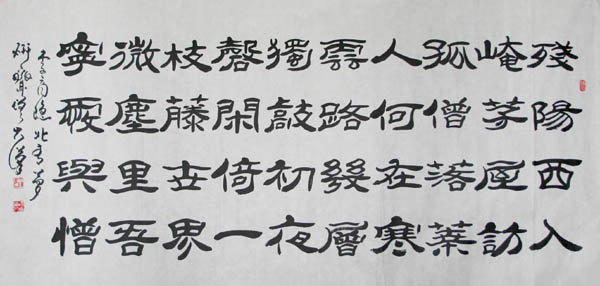 殘陽西入
崦茅屋訪
孤僧落葉
人何在寒
雲路幾層
獨敲初夜
磬閑倚一
枝藤世界
微塵里吾
寧愛與憎
李商隐北青萝